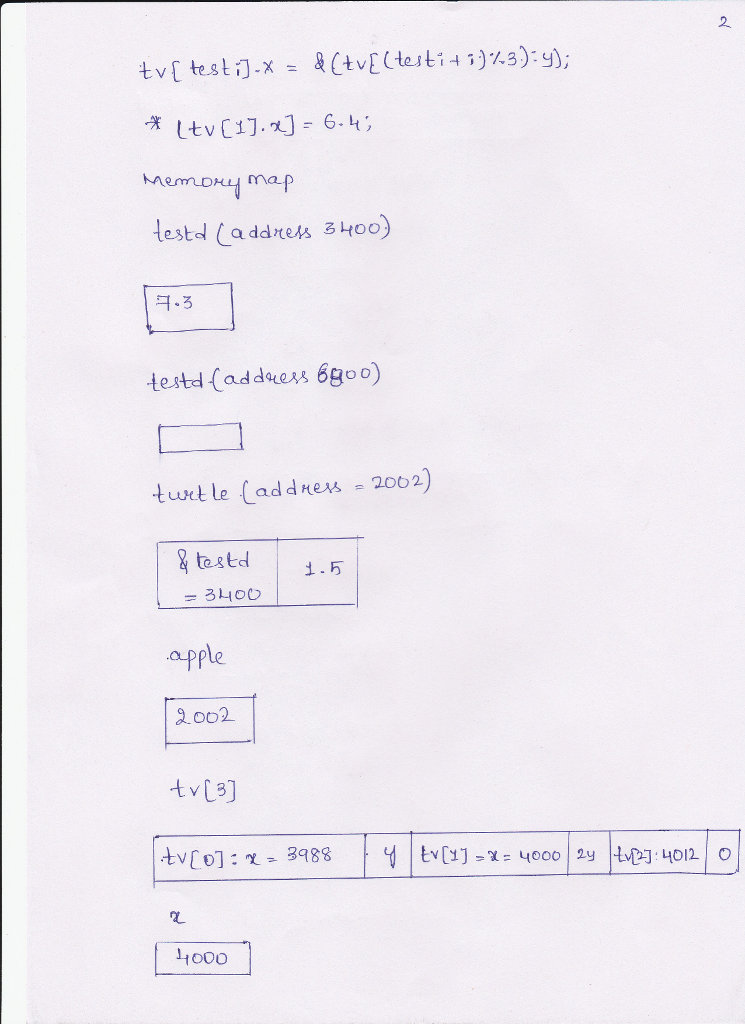 2
tv[testi].x = &(tv[(testi+i)%3):y);
* (tv[1].x] = 6.4;
Memory map
testd (address 3400)
7.3
testd (address 00)
turtle (address = 2002)
&testd 1.5
= 3400
apple
2002
tv[3]
tv[0]: x = 3988 y tv[1] = x = 4000 2y tv[2]: 4012 0
x
4000